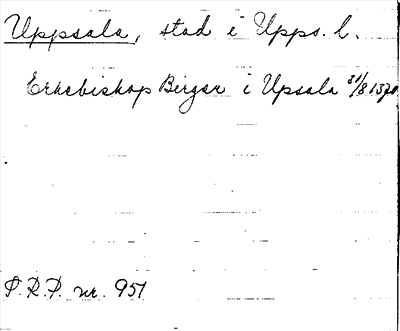 Uppsala, stad i Upps. l.
Erkebiskop Birger i Upsala 31/8 1370
P.R.P. nr. 951